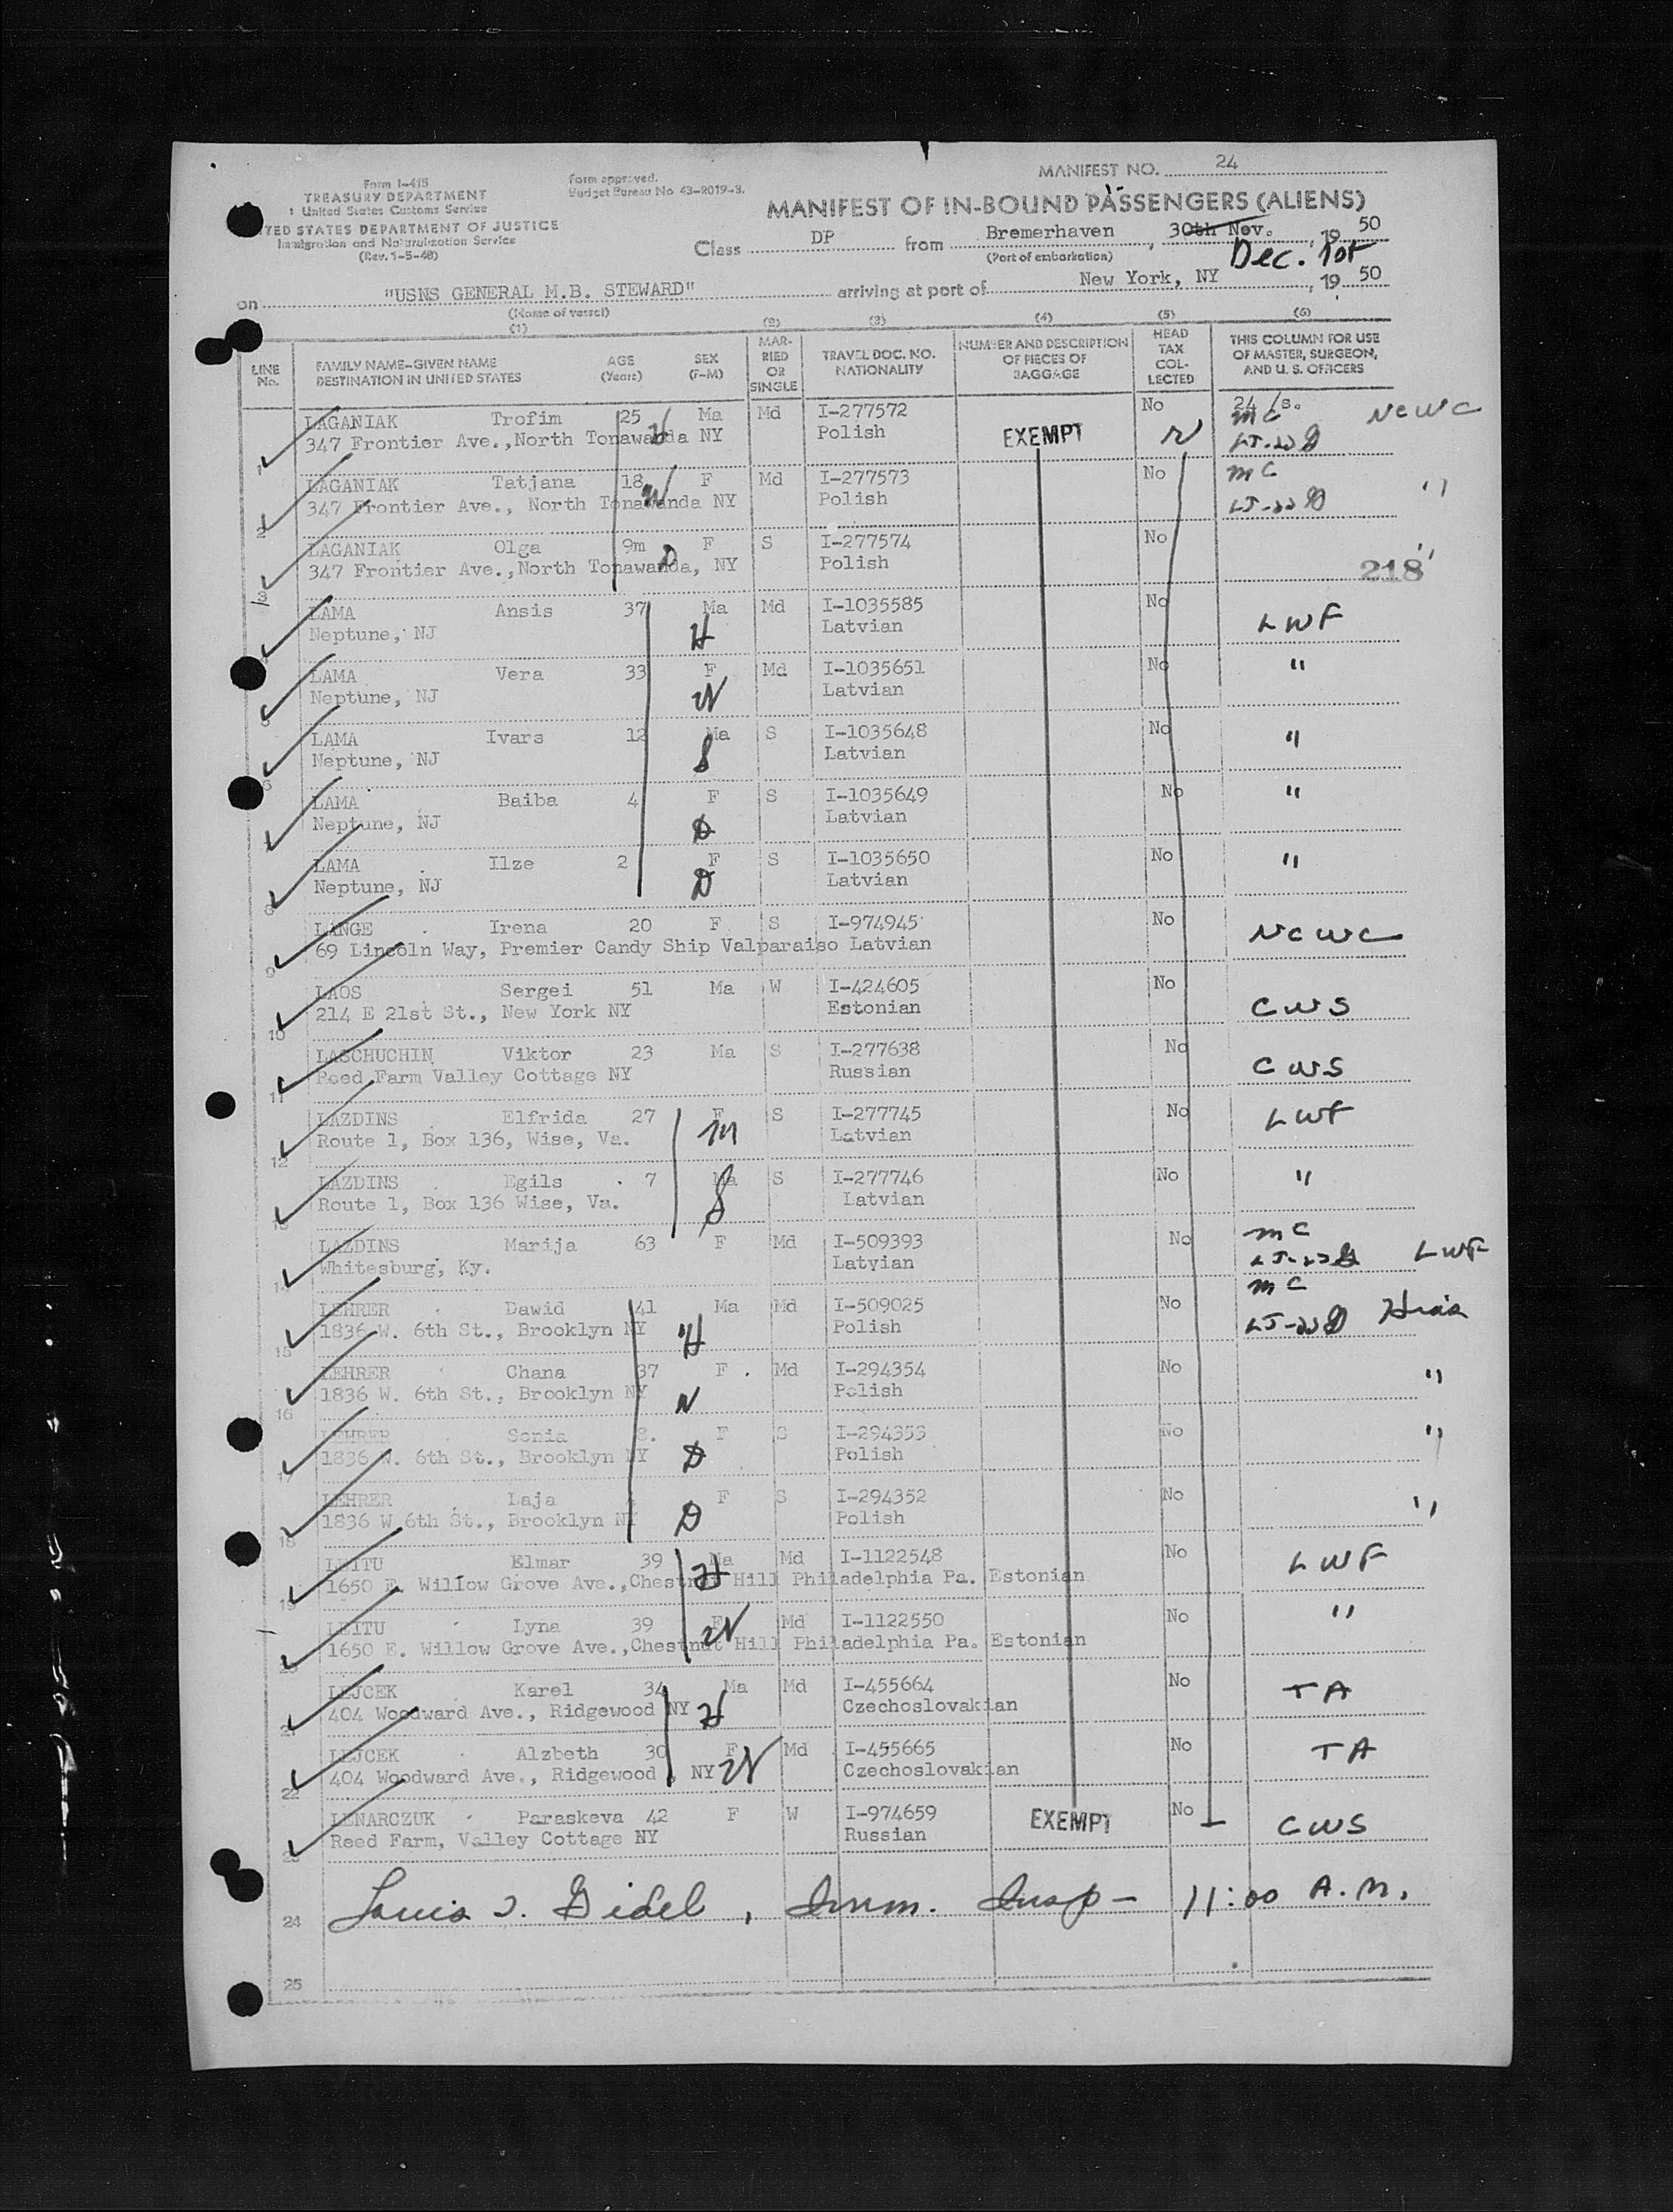 MANIFEST NO. 24
Form I-415
TREASURY DEPARTMENT
United States Customs Service
TED STATES DEPARTMENT OF JUSTICE
Immigration and Naturalization Service
(Rev. 1-5-48)
Form approved.
Budget Bureau No. 43-R019-3.
MANIFEST OF IN-BOUND PASSENGERS (ALIENS)
Class DP from Bremerhaven, 30th Nov., 19 50
(Port of embarkation) Dec. 1st
on "USNS GENERAL M.B. STEWARD" arriving at port of New York, NY, 19 50
(Name of vessel)
(1) (2) (3) (4) (5) (6)
LINE No. FAMILY NAME-GIVEN NAME DESTINATION IN UNITED STATES AGE (Years) SEX (F-M) MARRIED OR SINGLE TRAVEL DOC. NO. NATIONALITY NUMBER AND DESCRIPTION OF PIECES OF BAGGAGE HEAD TAX COLLECTED THIS COLUMN FOR USE OF MASTER, SURGEON, AND U. S. OFFICERS
LAGANIAK Trofim 25 Ma Md I-277572 No 24 /s. MC NCWC
1 347 Frontier Ave.,North Tonawanda NY H Polish EXEMPT
LAGANIAK Tatjana 18 F Md I-277573 No MC "
2 347 Frontier Ave., North Tonawanda NY W Polish
LAGANIAK Olga 9m F S I-277574 No "
3 347 Frontier Ave.,North Tonawanda, NY D Polish 218
LAMA Ansis 37 Ma Md I-1035585 No LWF
Neptune, NJ H Latvian
LAMA Vera 33 F Md I-1035651 No "
5 Neptune, NJ W Latvian
LAMA Ivars 12 Ma S I-1035648 No "
6 Neptune, NJ S Latvian
LAMA Baiba 4 F S I-1035649 No "
Neptune, NJ D Latvian
LAMA Ilze 2 F S I-1035650 No "
8 Neptune, NJ D Latvian
LANGE Irena 20 F S I-974945 No NCWC
9 69 Lincoln Way, Premier Candy Ship Valparaiso Latvian
LAOS Sergei 51 Ma W I-424605 No CWS
10 214 E 21st St., New York NY Estonian
LASCHUCHIN Viktor 23 Ma S I-277638 No CWS
11 Reed Farm Valley Cottage NY Russian
LAZDINS Elfrida 27 F S I-277745 No LWF
12 Route 1, Box 136, Wise, Va. M Latvian
LAZDINS Egils 7 Ma S I-277746 No "
13 Route 1, Box 136 Wise, Va. S Latvian
LAZDINS Marija 63 F Md I-509393 No MC LWF
14 Whitesburg, Ky. Latvian
LEHRER Dawid 41 Ma Md I-509025 No MC Hias
15 1836 W. 6th St., Brooklyn NY H Polish
LEHRER Chana 37 F Md I-294354 No "
16 1836 W. 6th St., Brooklyn NY W Polish
LEHRER Sonia 8. F S I-294353 No "
17 1836 W. 6th St., Brooklyn NY D Polish
LEHRER Laja F S I-294352 No "
18 1836 W 6th St., Brooklyn NY D Polish
LEITU Elmar 39 Ma Md I-1122548 No LWF
19 1650 E. Willow Grove Ave.,Chestnut Hill Philadelphia Pa. Estonian H
LEITU Lyna 39 F Md I-1122550 No "
20 1650 E. Willow Grove Ave.,Chestnut Hill Philadelphia Pa. Estonian W
LEJCEK Karel 34 Ma Md I-455664 No TA
21 404 Woodward Ave., Ridgewood NY H Czechoslovakian
LEJCEK Alzbeth 30 F Md I-455665 No TA
22 404 Woodward Ave., Ridgewood , NY W Czechoslovakian
LENARCZUK Paraskeva 42 F W I-974659 EXEMPT No CWS
23 Reed Farm, Valley Cottage NY Russian
24 Louis J. Gidel, Imm. Insp - 11:00 A.M.
25